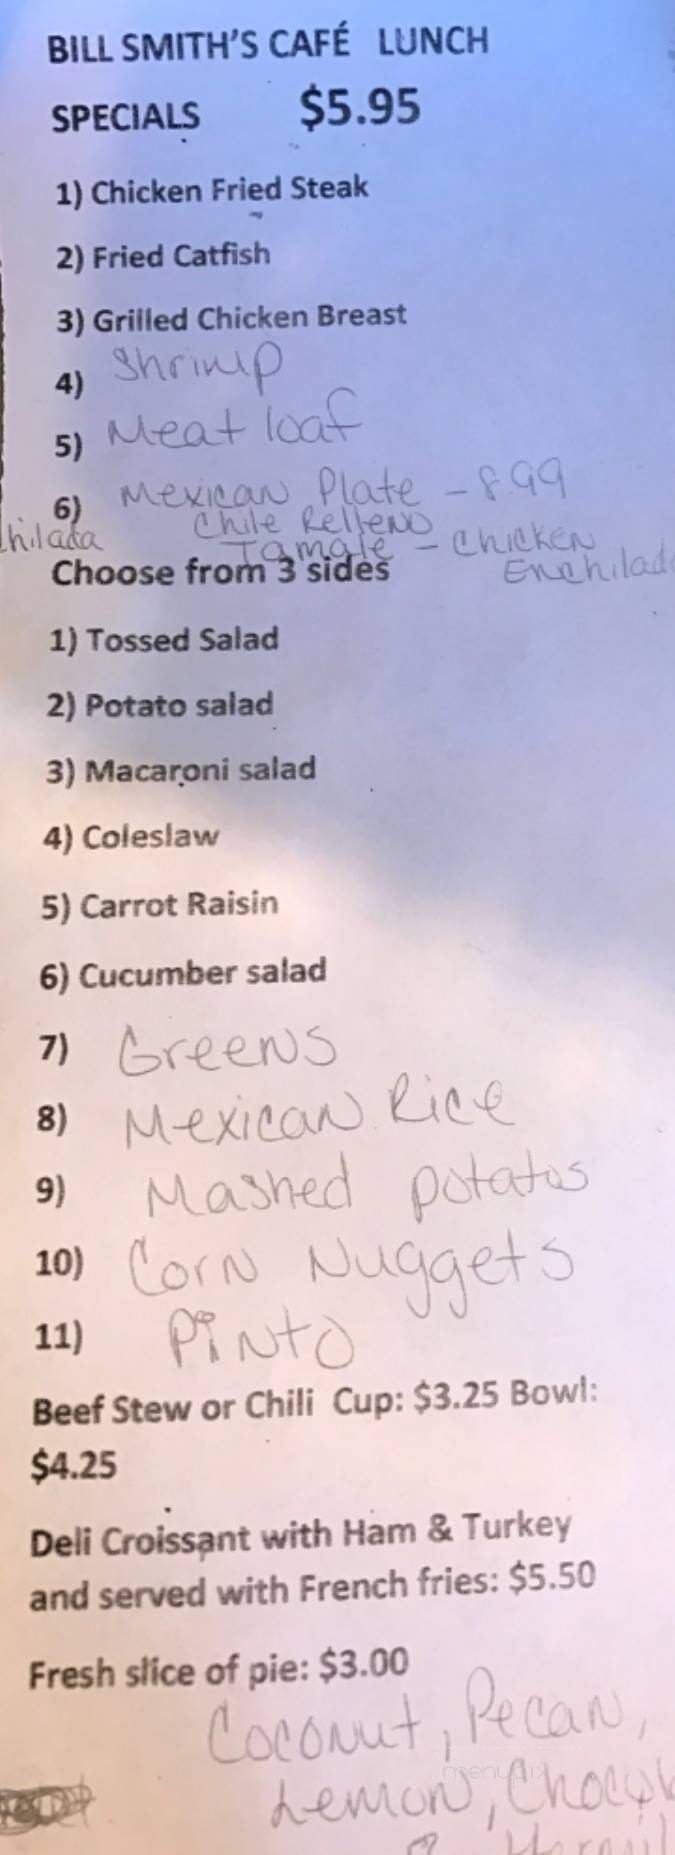 BILL SMITH'S CAFÉ LUNCH
SPECIALS $5.95
1) Chicken Fried Steak
2) Fried Catfish
3) Grilled Chicken Breast
4) Shrimp
5) Meat loaf
6) Mexican Plate - 8.99
Chile Relleno
hilada Tamale - Chicken
Enchilad
Choose from 3 sides
1) Tossed Salad
2) Potato salad
3) Macaroni salad
4) Coleslaw
5) Carrot Raisin
6) Cucumber salad
7) Greens
8) Mexican Rice
9) Mashed potatos
10) Corn Nuggets
11) Pinto
Beef Stew or Chili Cup: $3.25 Bowl:
$4.25
Deli Croissant with Ham & Turkey
and served with French fries: $5.50
Fresh slice of pie: $3.00
Coconut, Pecan,
menupix
Lemon,